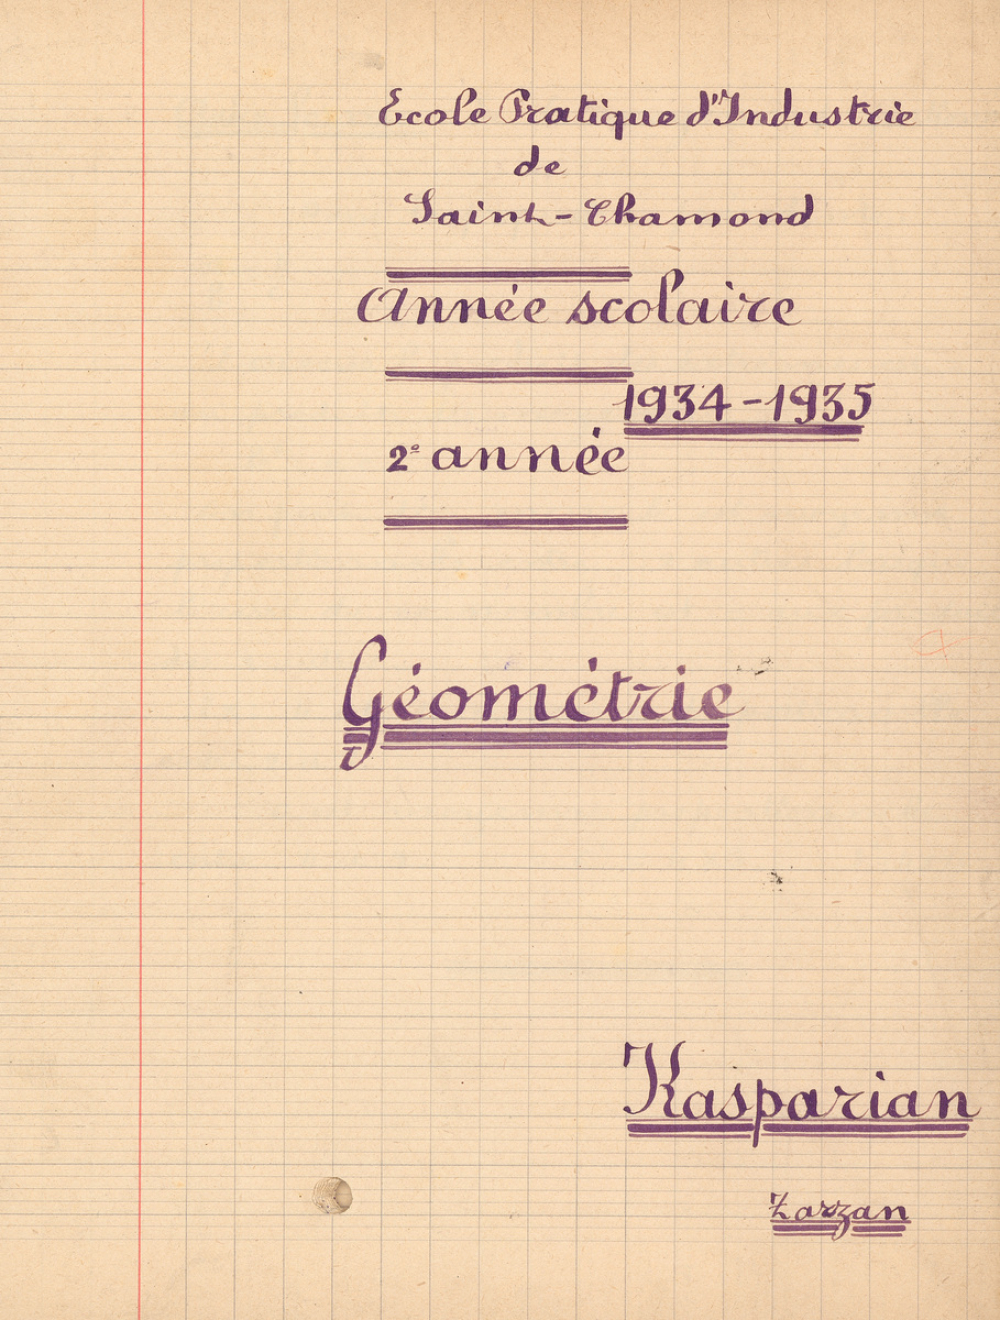 Ecole Pratique d'Industrie
de
Saint-Chamond
Année scolaire
1934-1935
2e année
Géométrie
Kasparian
Zarzan